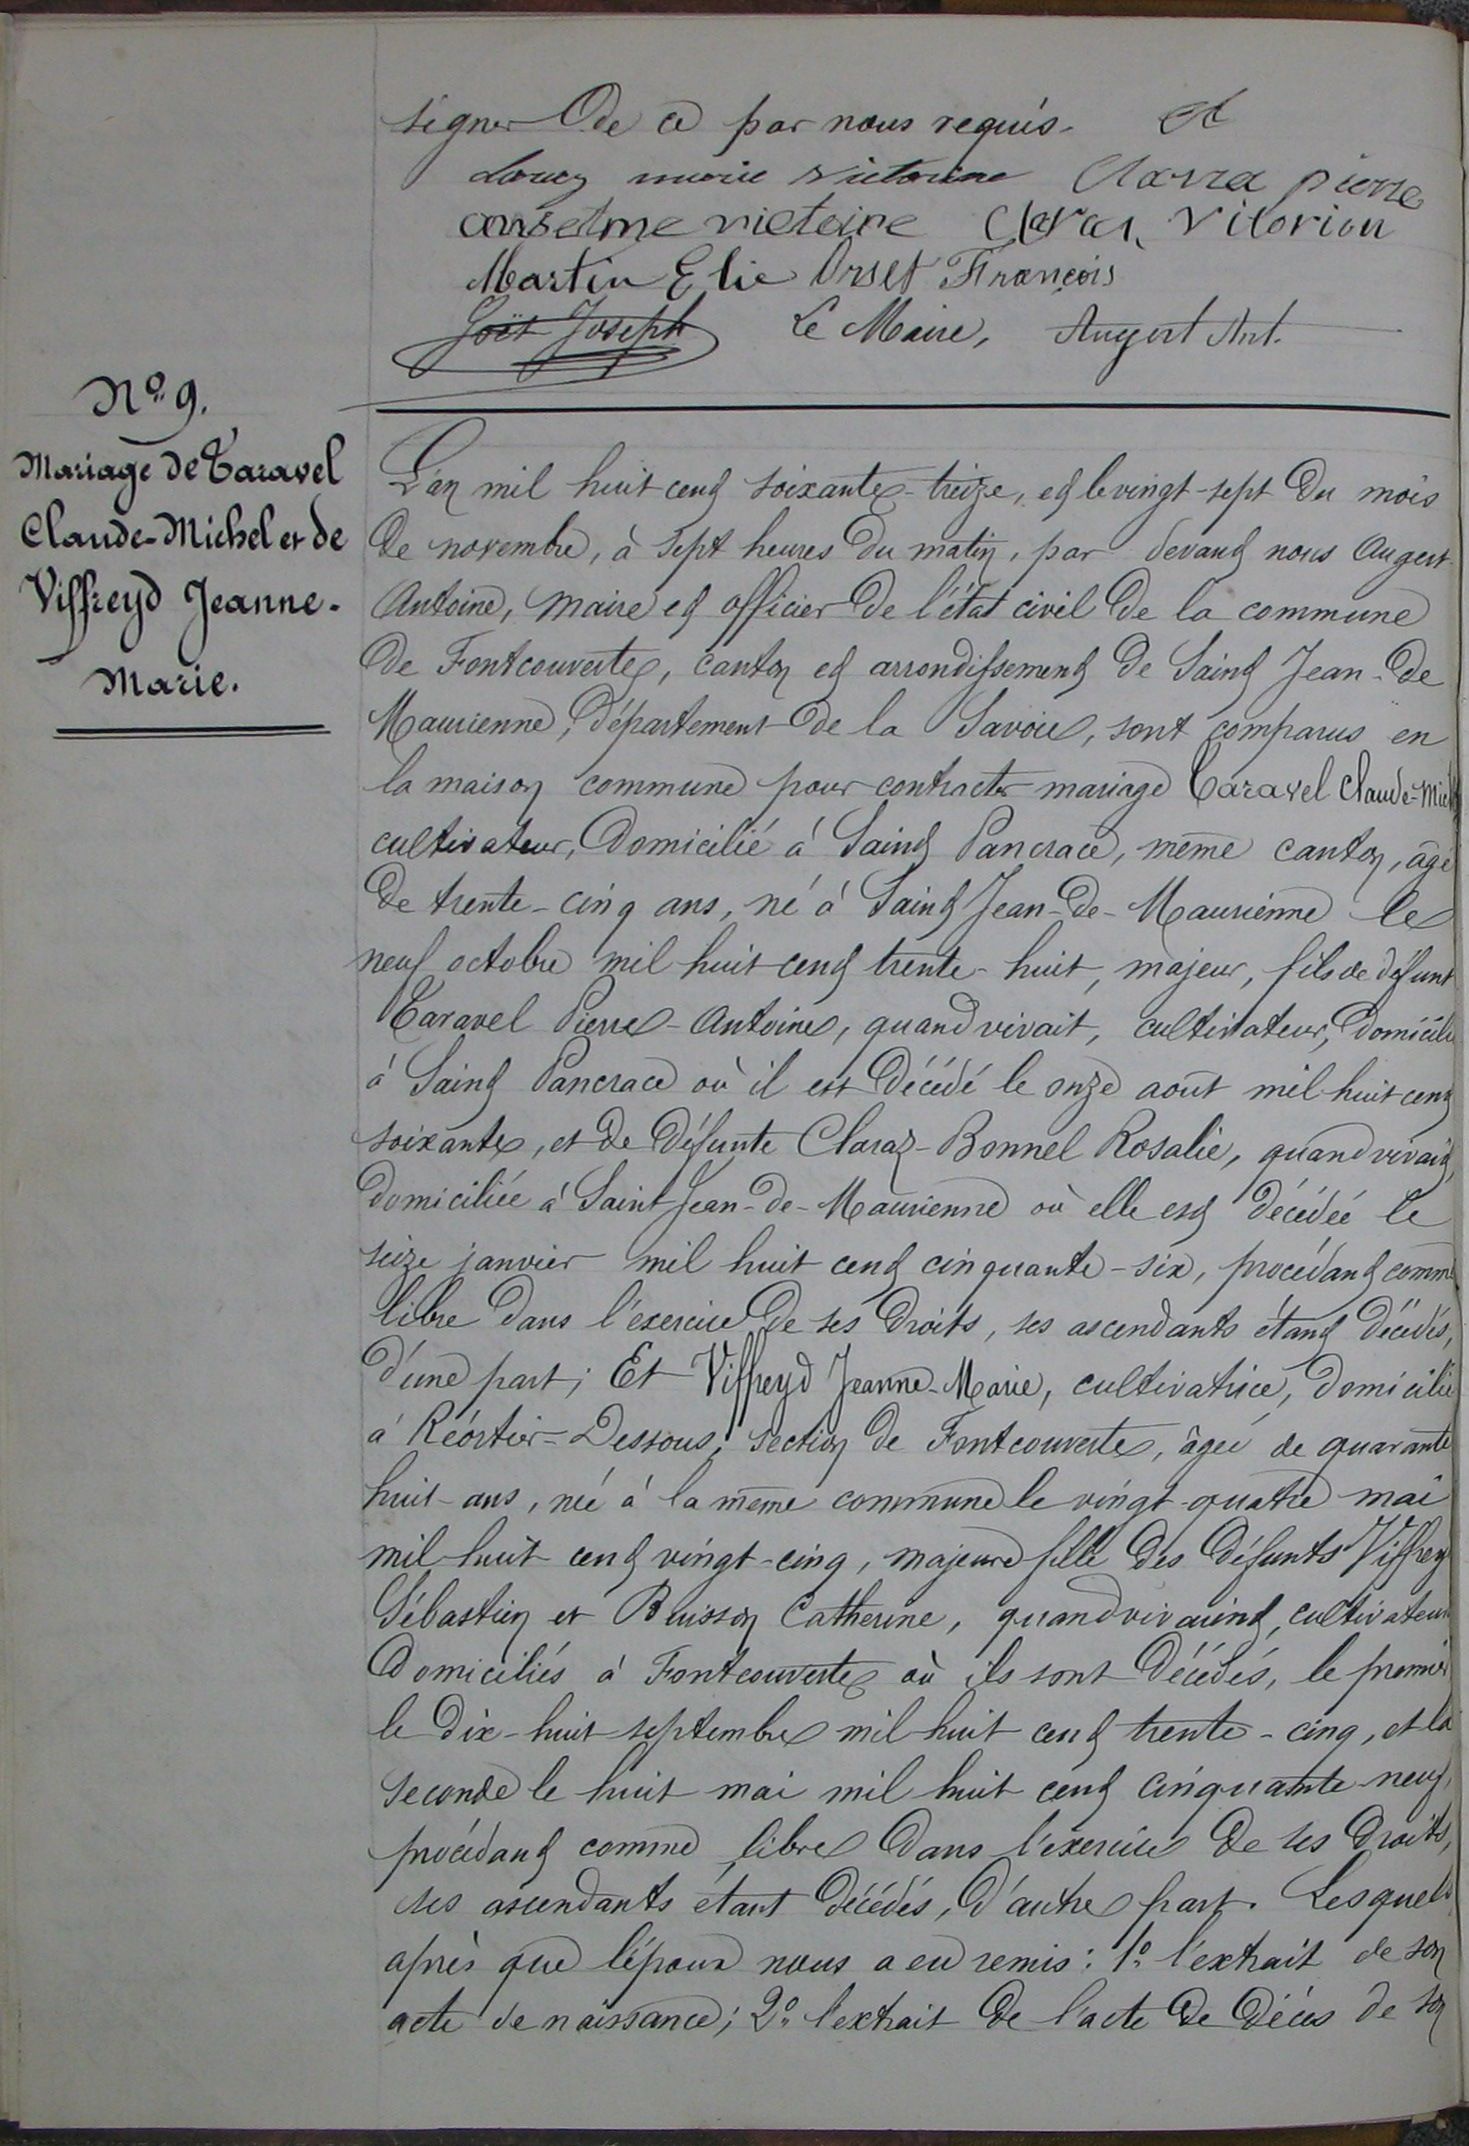 signer de ce par nous requis. et
Louis marie Victorine Clara pierre
anselme victoire Claraz Vitorien
Martin Elie Orset François
Joët Joseph Le Maire, Augert Ant.
N.º 9.
Mariage de Taravel
Claude-Michel et de
Viffreyd Jeanne-
Marie.
L'an mil huit cent soixante-treize, et le vingt-sept du mois
de novembre, à sept heures du matin, par devant nous Augert
Antoine, maire et officier de l'état civil de la commune
de Fontcouverte, canton et arrondissement de Saint Jean-de
Maurienne, département de la Savoie, sont comparus en
la maison commune pour contracter mariage Taravel Claude-Michel
cultivateur, domicilié à Saint Pancrace, même canton, âgé
de trente-cinq ans, né à Saint Jean-de-Maurienne le
neuf octobre mil huit cent trente-huit, majeur, fils de défunt
Taravel Pierre-Antoine, quand vivait, cultivateur, domicilié
à Saint Pancrace où il est décédé le onze août mil huit cent
soixante, et de défunte Claraz-Bonnel Rosalie, quand vivait,
domiciliée à Saint Jean-de-Maurienne où elle est décédée le
seize janvier mil huit cent cinquante-six, procédant comme
libre dans l'exercice de ses droits, ses ascendants étant décédés,
d'une part; Et Viffreyd Jeanne-Marie, cultivatrice, domiciliée
à Réortier-Dessous, section de Fontcouverte, âgée de quarante
huit ans, née à la même commune le vingt-quatre mai
mil huit cent vingt-cinq, majeure fille des défunts Viffreyd
Sébastien et Buisson Catherine, quand vivaient, cultivateurs
domiciliés à Fontcouverte où ils sont décédés, le premier
le dix-huit septembre mil huit cent trente-cinq, et la
seconde le huit mai mil huit cent cinquante-neuf,
procédant comme libre dans l'exercice de ses droits,
ses ascendants étant décédés, d'autre part. Lesquels
après que l'époux nous a eu remis: 1º l'extrait de son
acte de naissance; 2º l'extrait de l'acte de décès de son